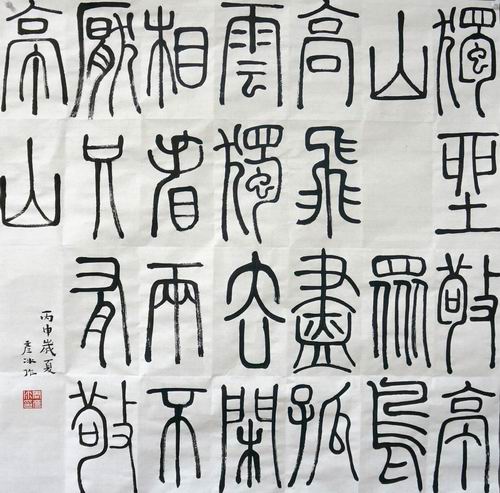 獨坐敬亭
山 眾鳥
高飛盡孤
雲獨去閑
相看兩不
厭只有敬
亭山
丙申歲夏
彥冰作